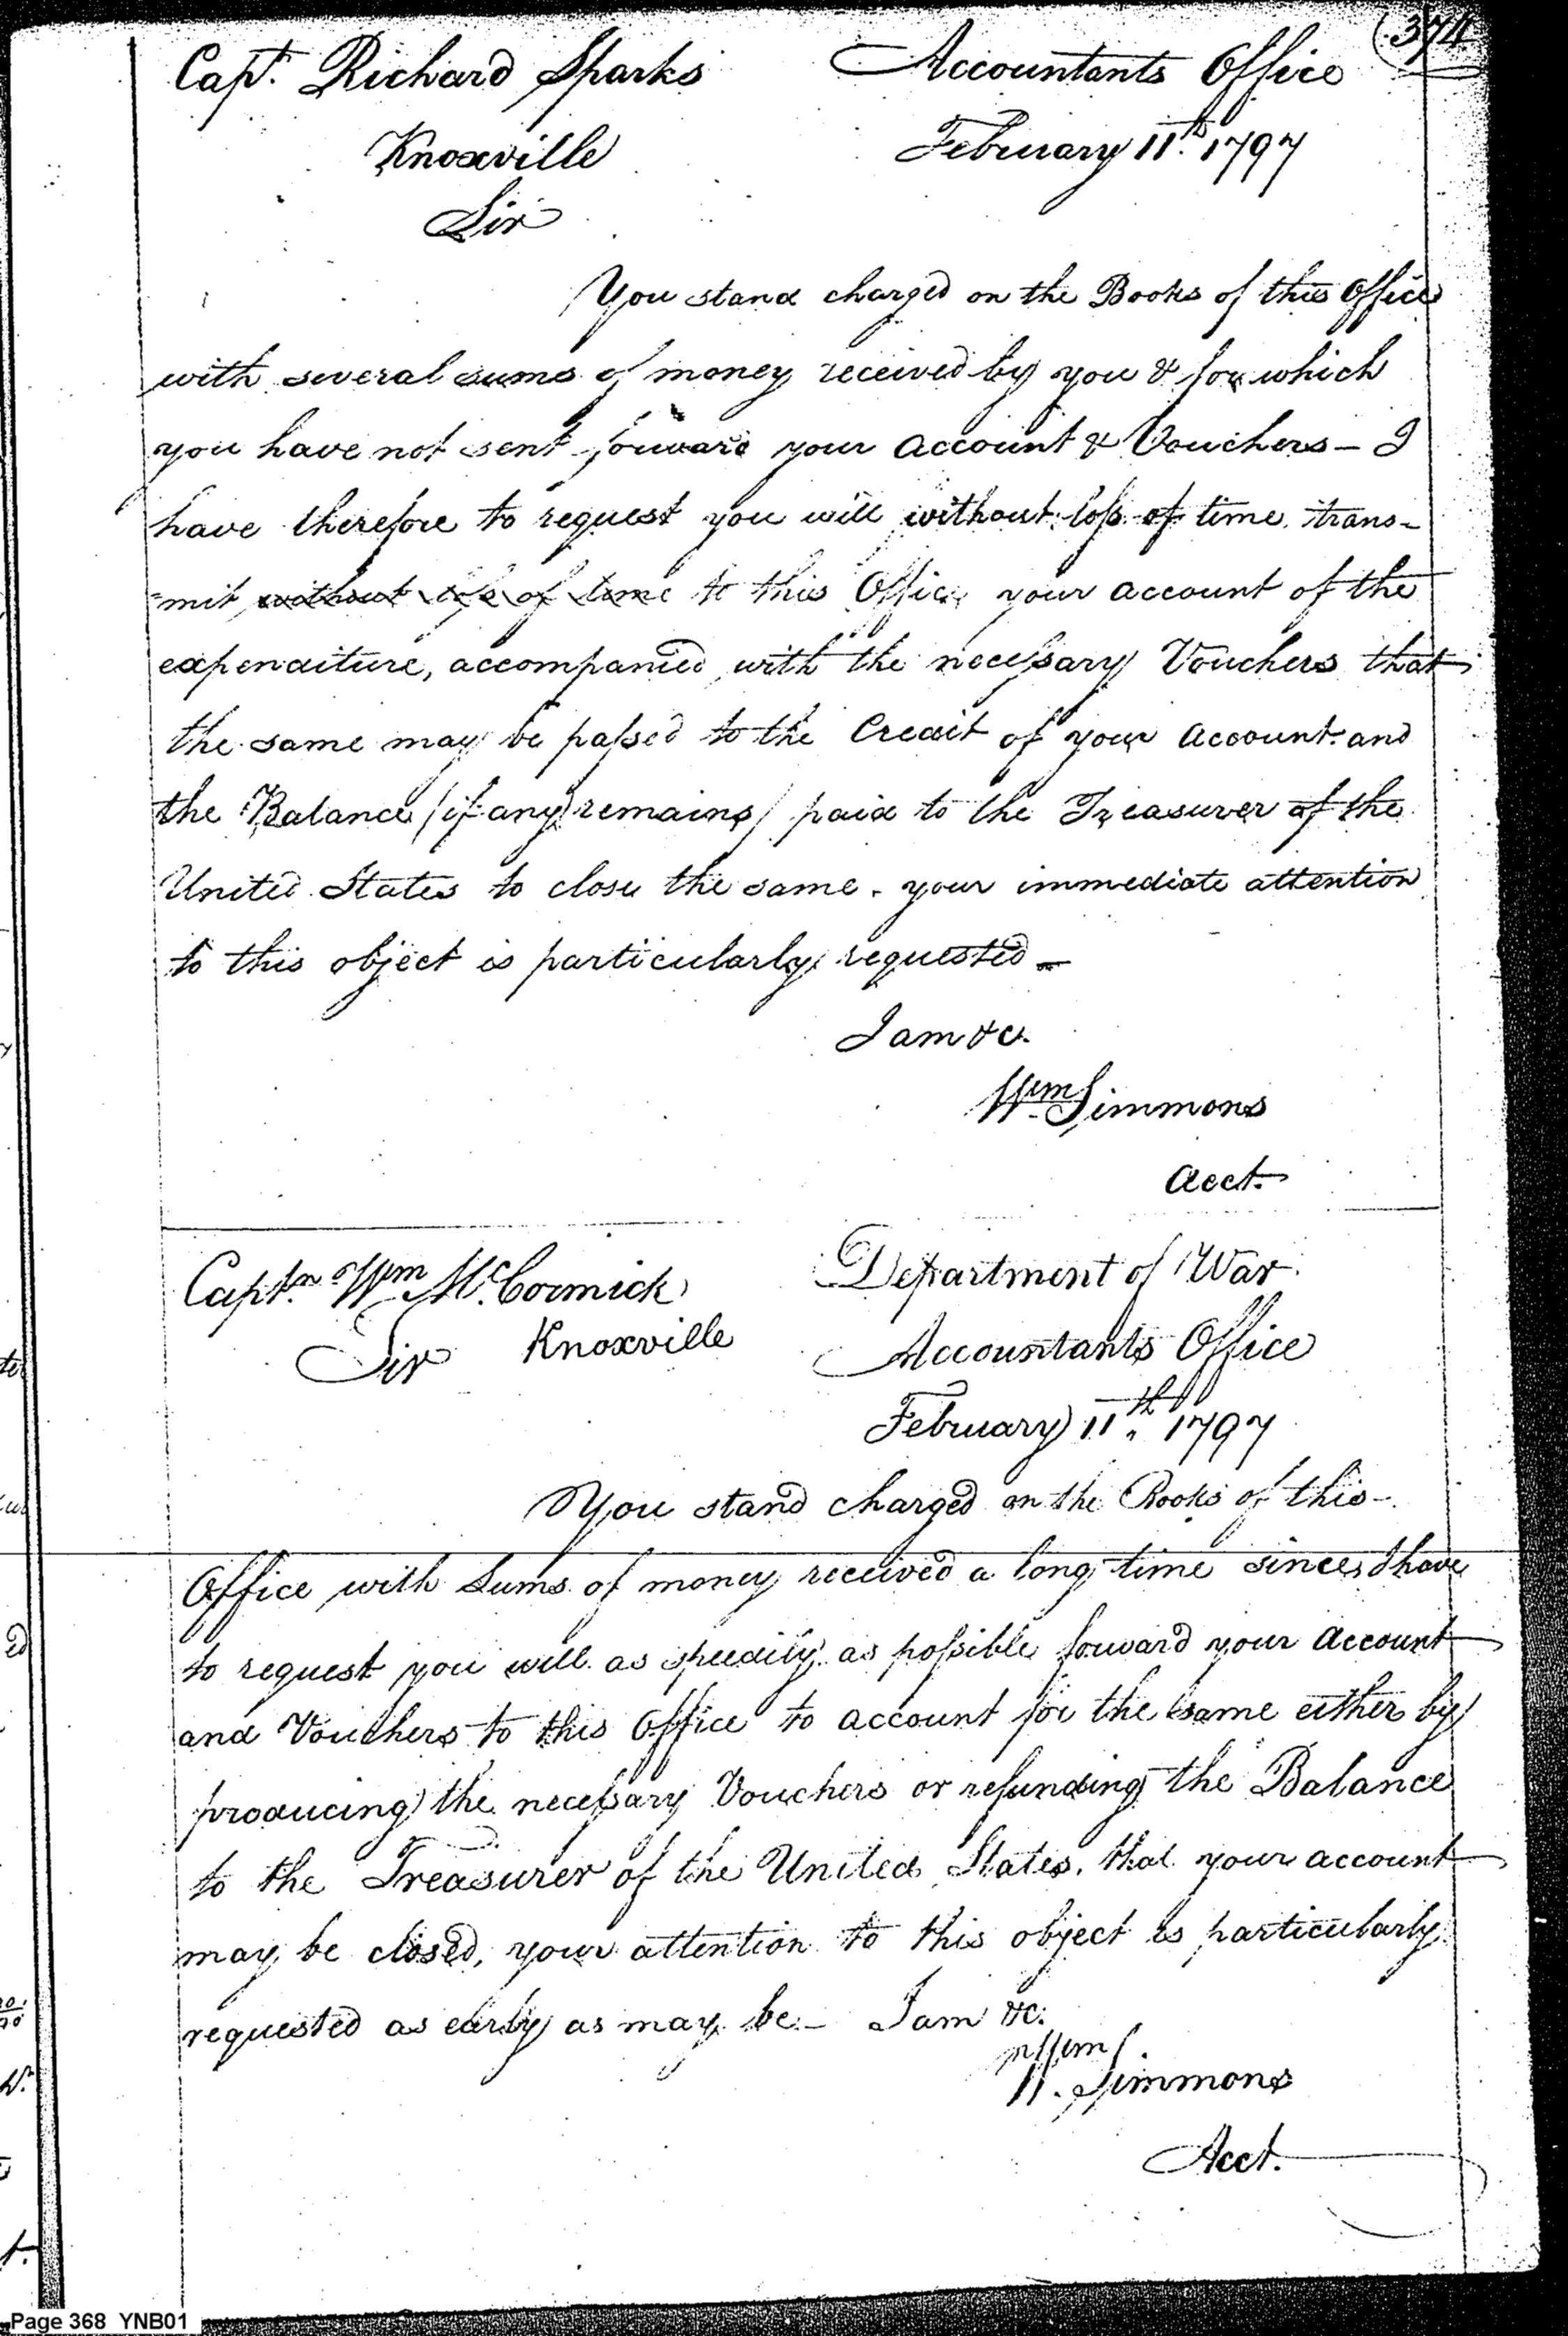 (374
Capt. Richard Sparks Accountants Office
Knoxville February 11th. 1797
Sir
You stand charged on the Books of this Office
with several sums of money received by you & for which
you have not sent forward your account & Vouchers – I
have therefore to request you will without loss of time trans-
-mit without loss of time to this Office your account of the
expenditure, accompanied with the necessary Vouchers that
the same may be passed to the Credit of your account and
the Balance (if any remains) paid to the Treasurer of the
United States to close the same. your immediate attention
to this object is particularly requested –
I am &c.
Wm Simmons
Acct.
Captn. Wm Mc.Cormick Department of War
Sir Knoxville Accountants Office
February 11th. 1797
You stand charged on the Books of this –
Office with Sums of money received a long time since, I have
to request you will as speedily as possible forward your account
and Vouchers to this Office to account for the same either by
producing the necessary Vouchers or refunding the Balance
to the Treasurer of the United States, that your account
may be closed, your attention to this object is particularly
requested as early as may be – I am &c.
Wm. Simmons
Acct.
Page 368 YNB01